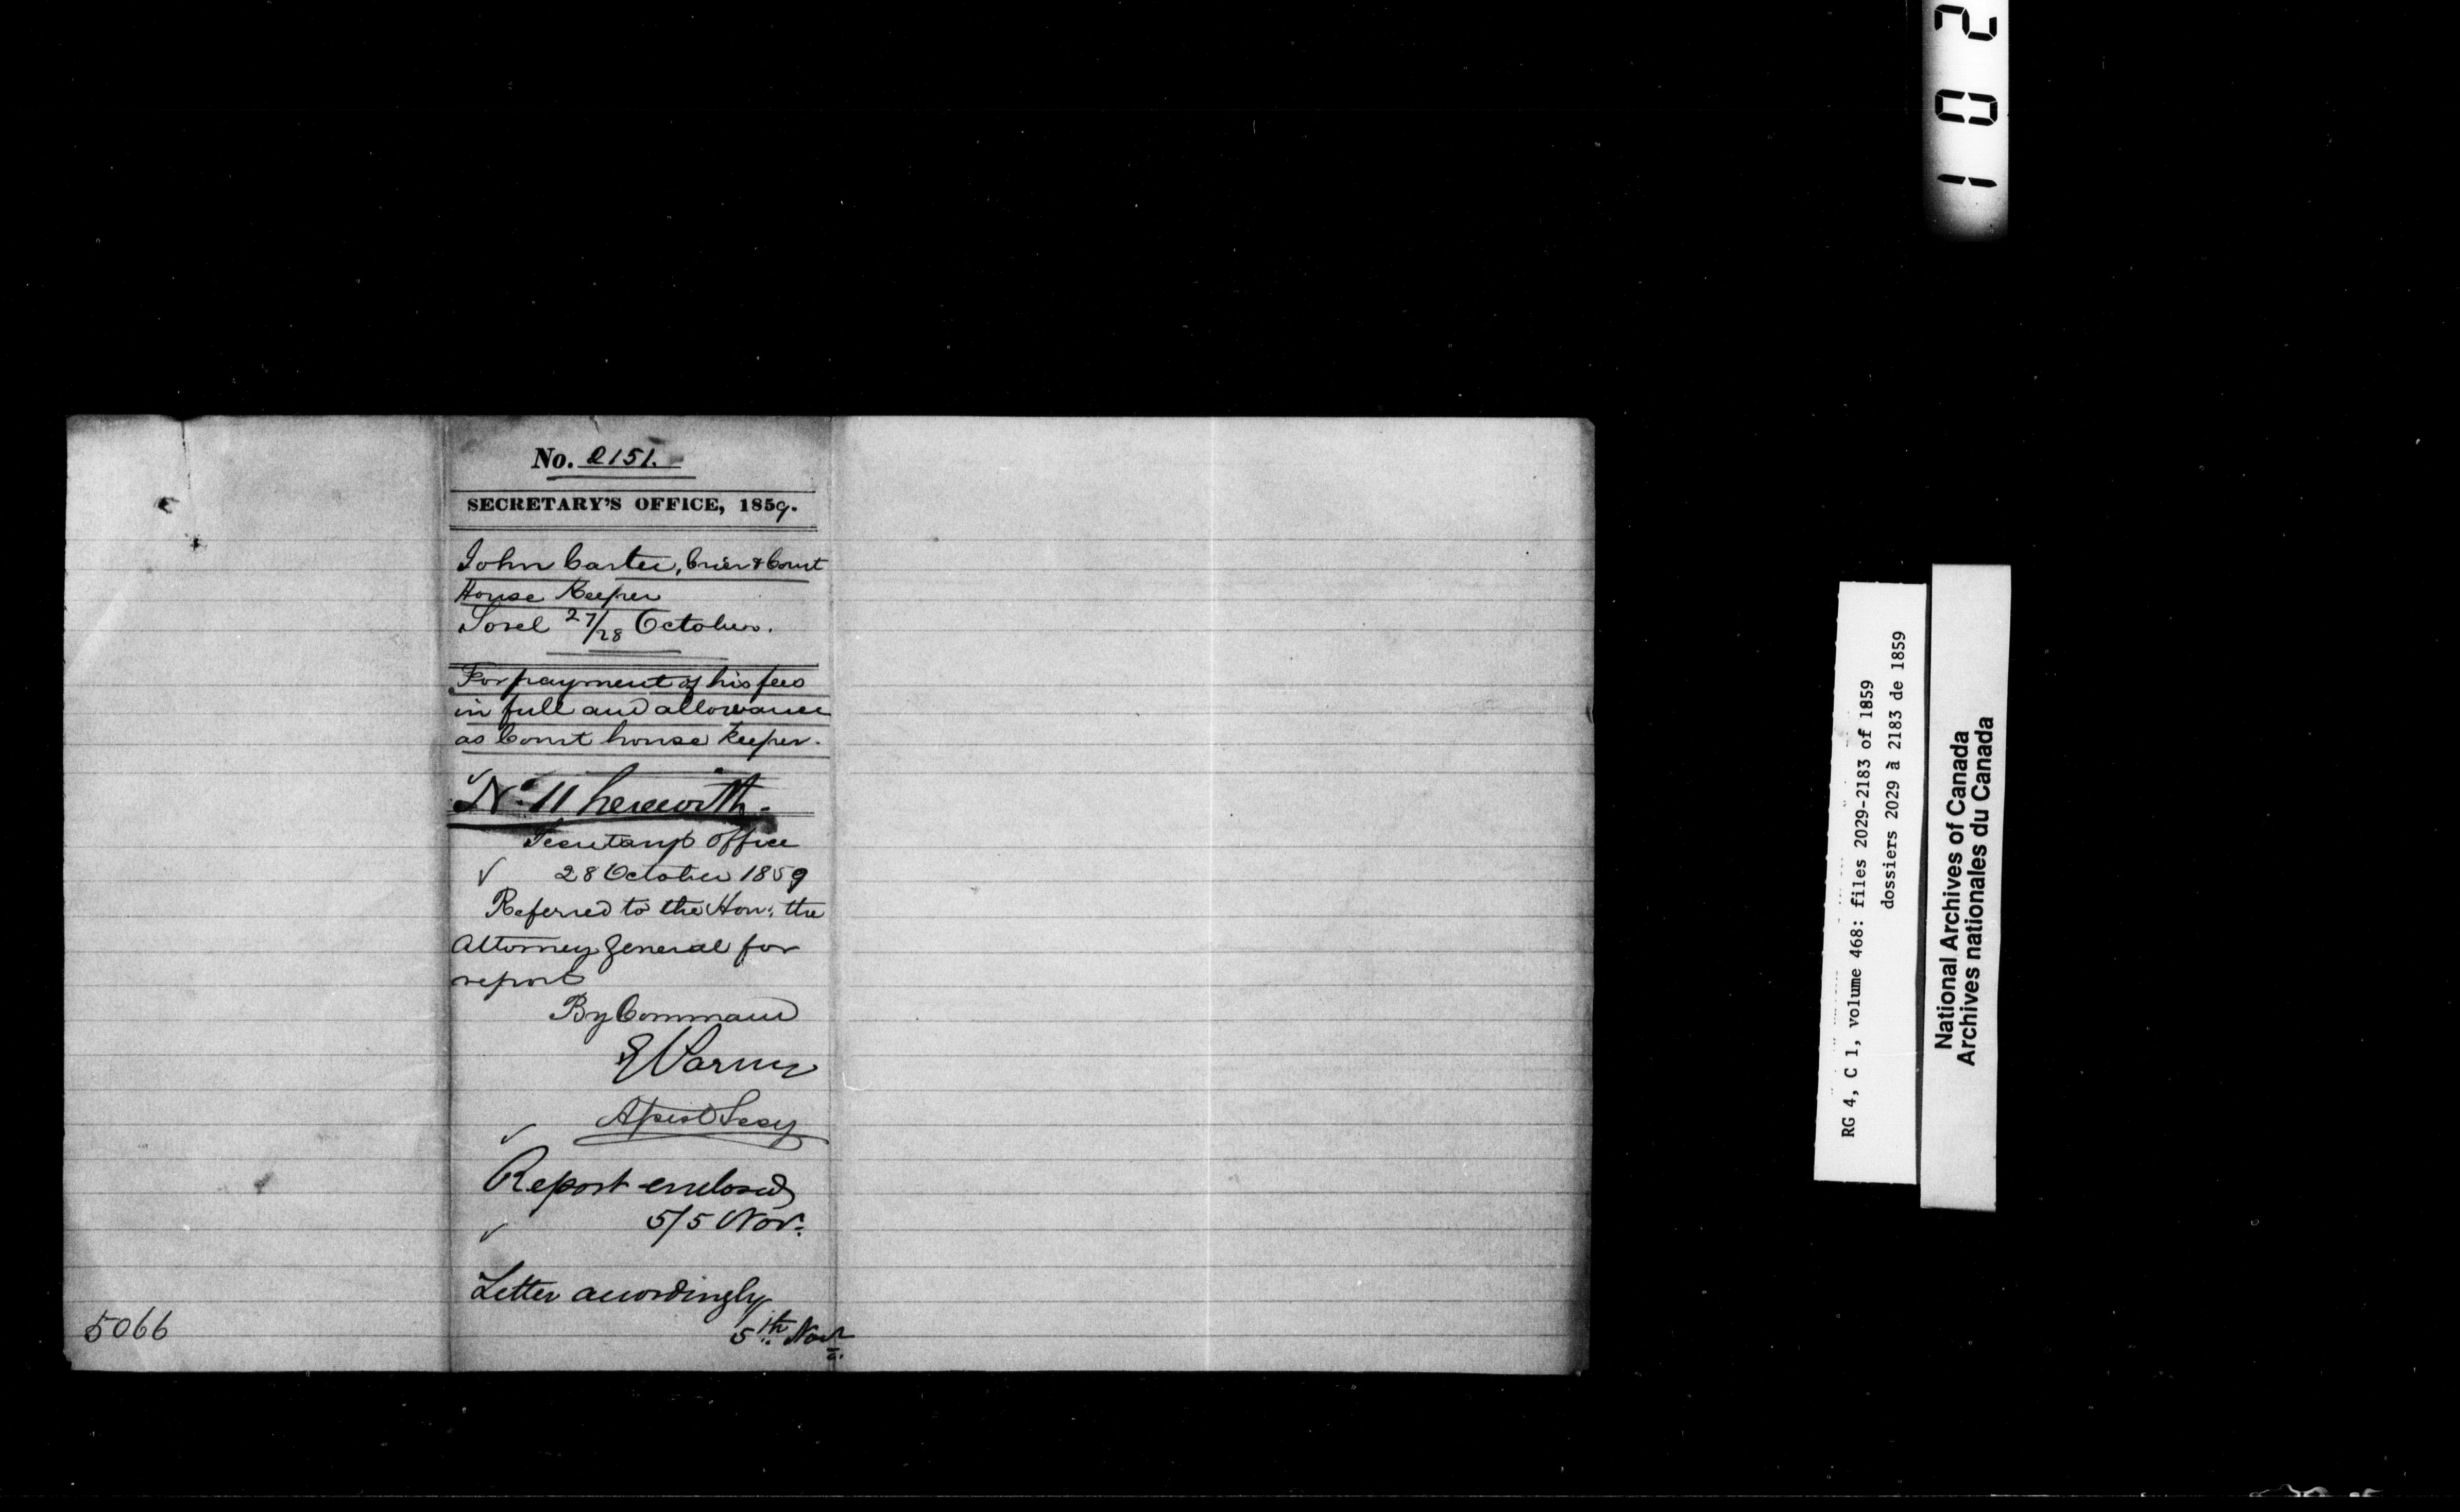 No. 2151.
SECRETARY'S OFFICE, 1859.
John Carter, Crier & Court
House Keeper
Sorel 27/28 October.
For payment of his fees
in full and allowance
as Court house keeper.
No. 11 herewith.
Secretary's Office
28 October 1859
Referred to the Hon: the
Attorney General for
report
By Command
Asst Secy
Report enclosed
5/5 Nov.
Letter accordingly
5th Novr.
5066
102
RG 4, C 1, volume 468: files 2029-2183 of 1859
dossiers 2029 à 2183 de 1859
National Archives of Canada
Archives nationales du Canada